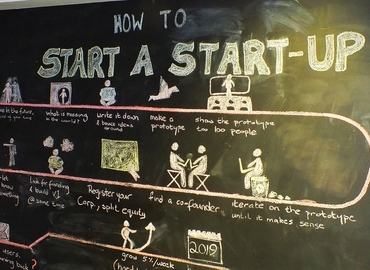 HOW TO
START A START-UP
in the future.
what is missing
in the world?
write it down
& bounce ideas
around
make a
prototype
show the prototype
too 100 people
let
know
something
look for funding
& build V1
@ same time
Register your
Corp., split equity
find a co-founder
iterate on the prototype
until it makes sense
users.
coming back?
grow 5%/week
2019